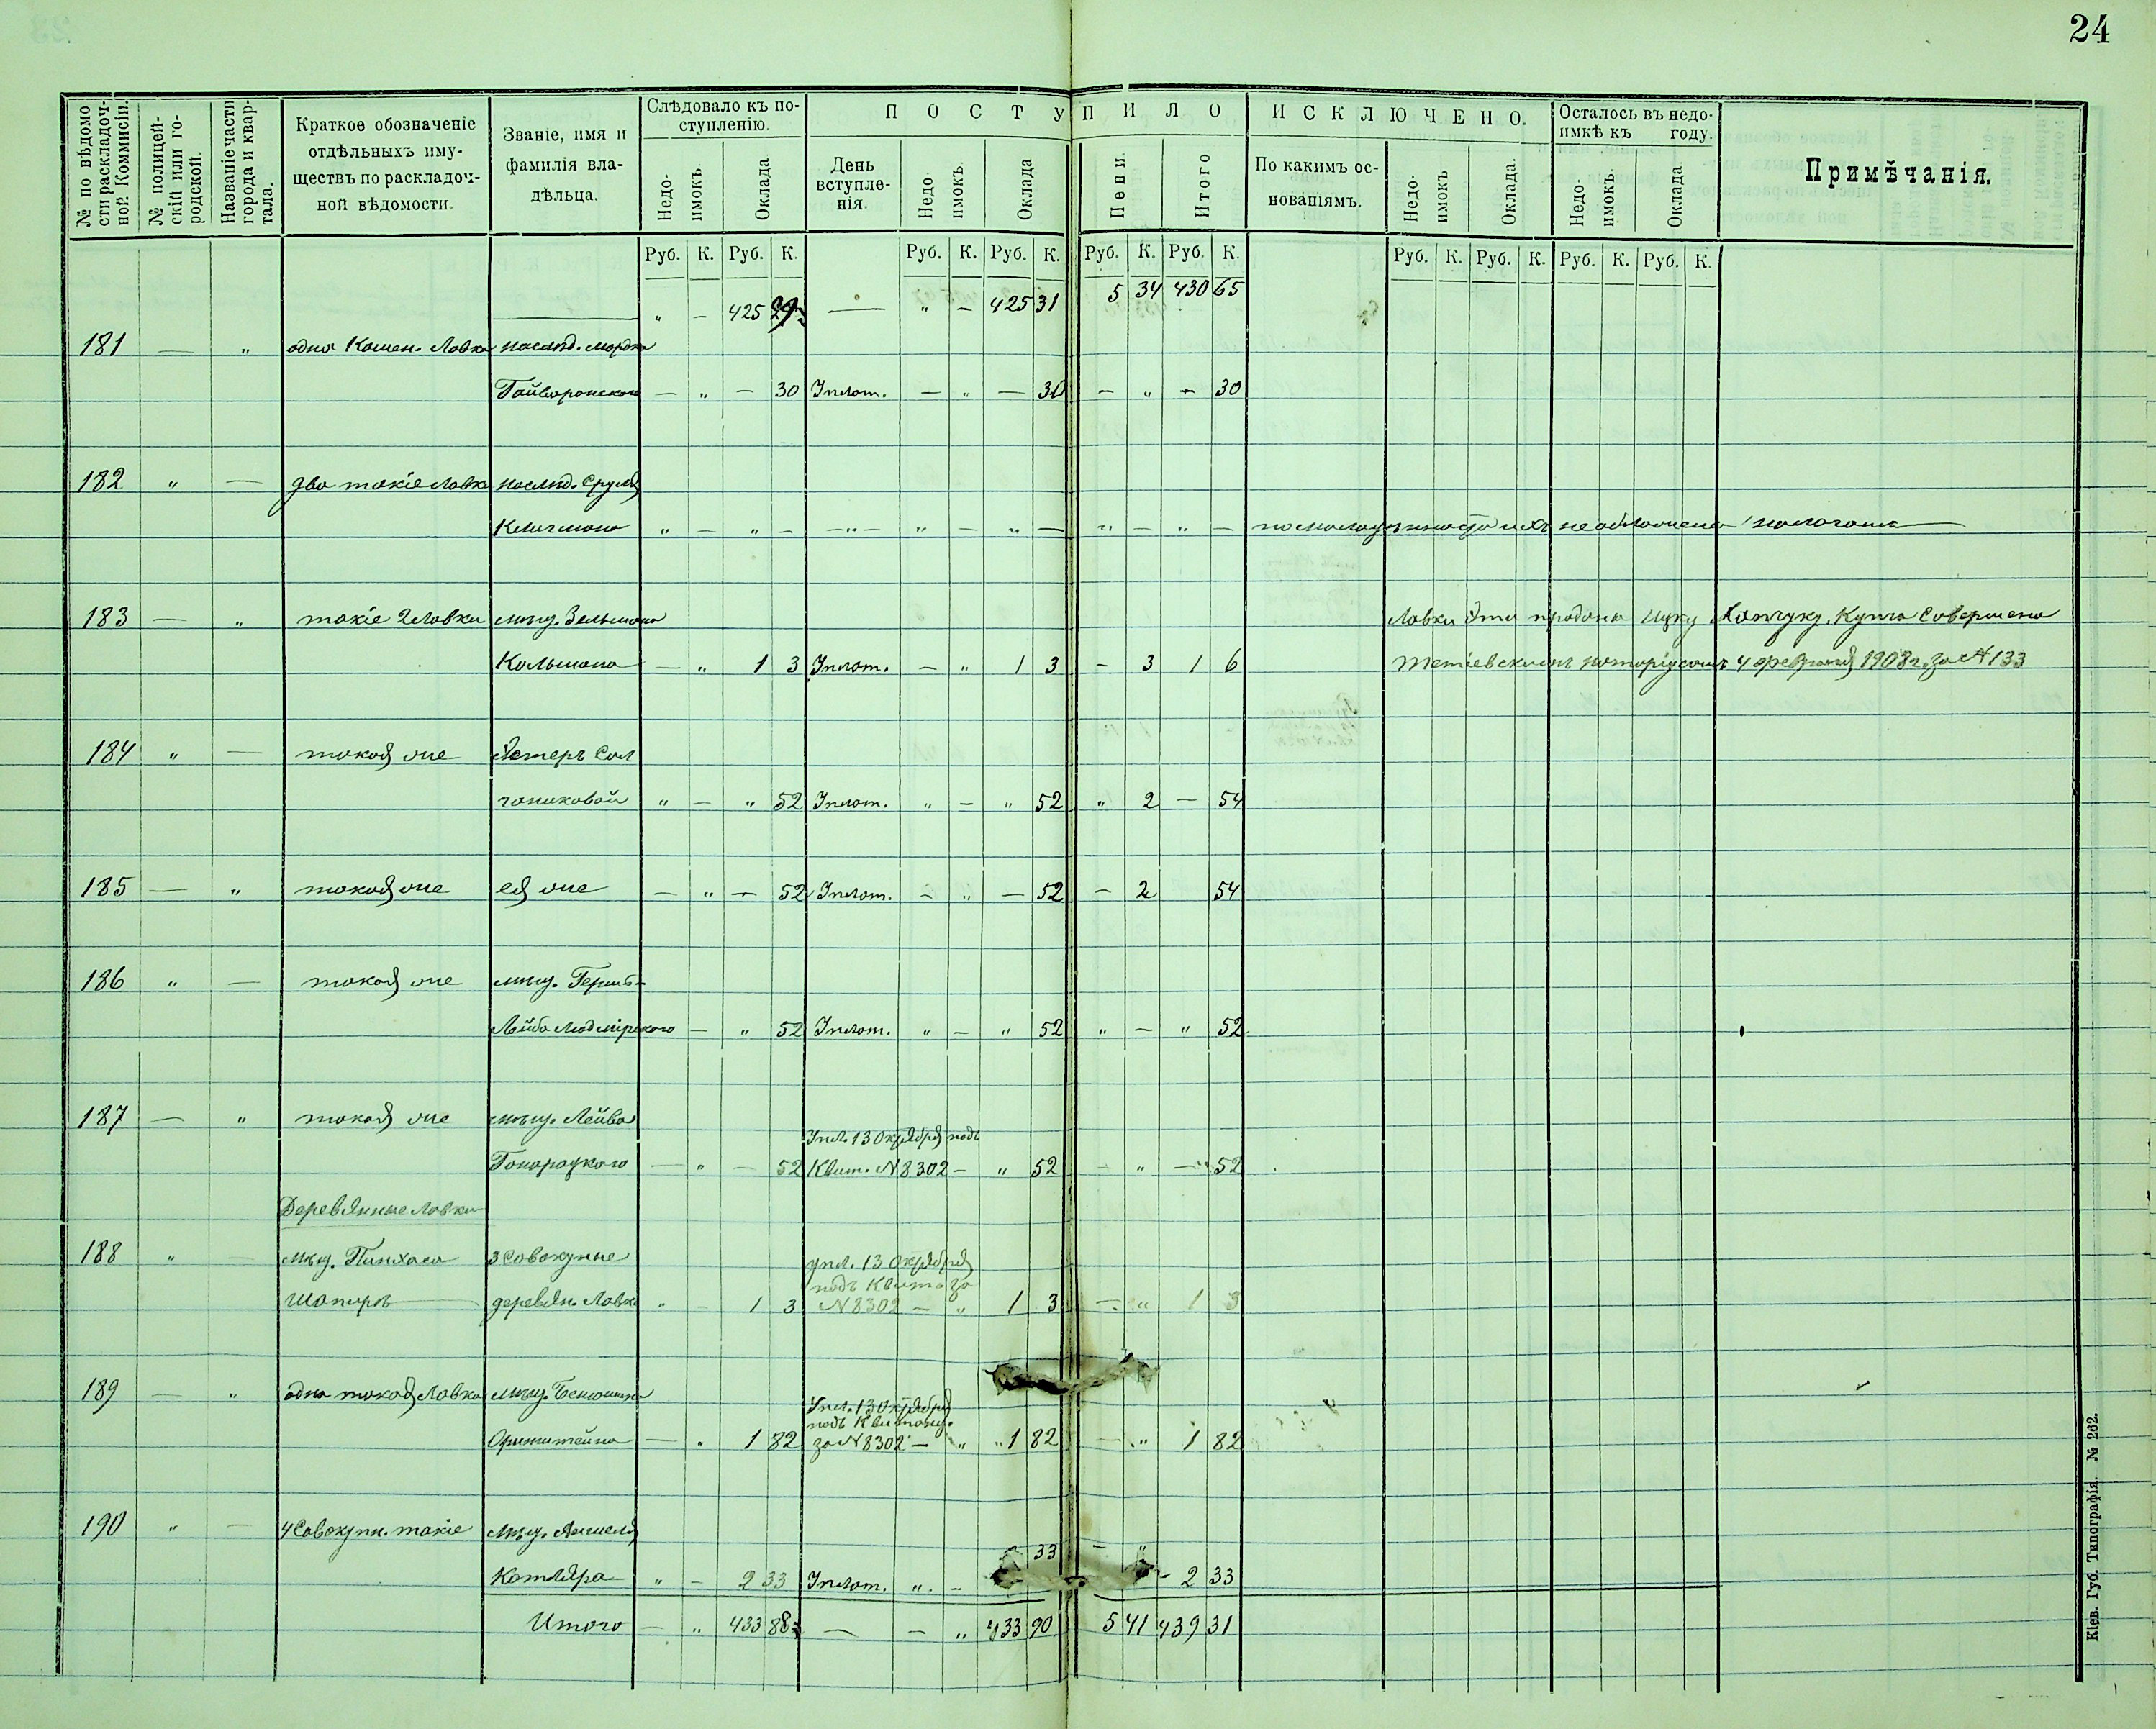 24
№ по вѣдомости раскладочной Коммисіи.
№ полицейскій или городской.
Названіе части города и квартала.
Краткое обозначеніе отдѣльныхъ имуществъ по раскладочной вѣдомости.
Званіе, имя и фамилія владѣльца.
Слѣдовало къ поступленію.
Недоимокъ.
Оклада
ПОСТУПИЛО
День вступленія.
Недоимокъ.
Оклада
Пени.
Итого
ИСКЛЮЧЕНО.
По какимъ основаніямъ.
Недоимокъ
Оклада.
Осталось въ недоимкѣ къ году.
Недоимокъ.
Оклада.
Примѣчанія.
Руб. К. Руб. К. Руб. К. Руб. К. Руб. К. Руб. К. Руб. К. Руб. К. Руб. К. Руб. К.
" — 425 — " — 425 31 5 34 430 65
181 — " одна Камен. Лавка наслѣд. Мордка
Гайворонскаго — " — 30 Уплат. — " — 30 — " — 30
182 " — два такіе лавки наслѣд. Сруля
Клигмана " — " — — " — " — " — " — " —
183 — " такіе 2 лавки мѣщ. Зельмана Лавки эти проданы Ицку Купча совершена
Кальмана — " 1 3 Уплат. — " 1 3 — 3 1 6 Тетіевскимъ нотаріусомъ 4 февраля 1908 г. за № 133
184 " — такая же Эстеръ Сал
гониковой " — " 52 Уплат. " — " 52 " 2 — 54
185 — " такая же ея же — " — 52 Уплат. — " — 52 — 2 54
186 " — такая же мѣщ. Гершъ-
Лейба Людмірского — " 52 Уплат. " — " 52 " — " 52
187 — " такая же мѣщ. Лейба
Упл. 13 Октября подъ
— " — 52 Квит. № 8302 — " 52 — " — 52
Деревянные лавки
188 " — мѣщ. Пинхаса 3 совокупные упл. 13 Октября
подъ Квит. за
Шапиръ деревян. Лавк " — 1 3 № 8302 — " 1 3 — " 1 3
189 — " одна такая лавка мѣщ.
Упл. 13 Октября
подъ Квитанц.
— " 1 82 за № 8302 — " " 1 82 — " 1 82
190 " — 4 Совокупн. такіе мѣщ.
33 — "
Котляра " — 2 33 Уплат. " — — 2 33
Итого — " 433 88 — — " 433 90 5 41 439 31
Кіев. Губ. Типографія. № 262.